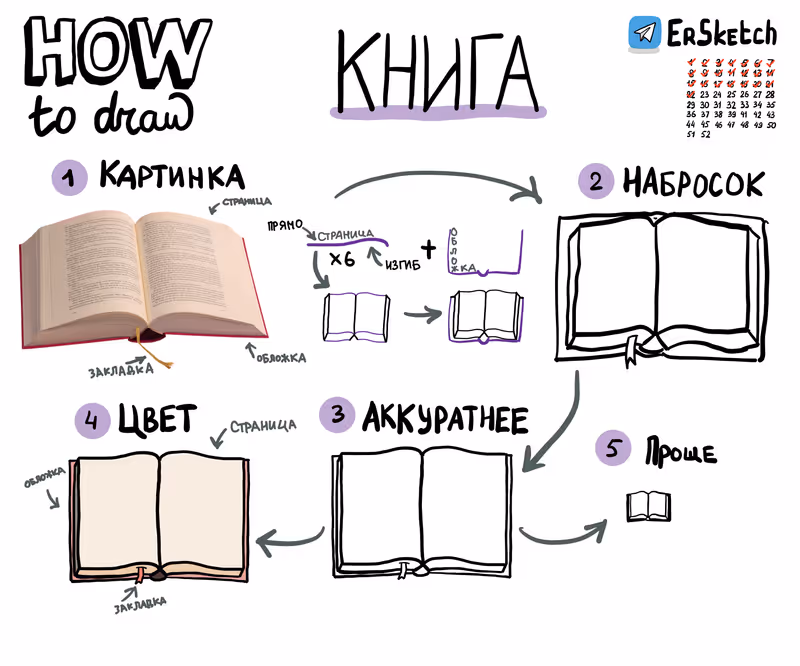 HOW
to draw
КНИГА
ErSketch
1 2 3 4 5 6 7
8 9 10 11 12 13 14
15 16 17 18 19 20 21
22 23 24 25 26 27 28
29 30 31 32 33 34 35
36 37 38 39 41 42 43
44 45 46 47 48 49 50
51 52
1 КАРТИНКА
СТРАНИЦА
ЗАКЛАДКА
ОБЛОЖКА
ПРЯМО
СТРАНИЦА
x6
ИЗГИБ
+
ОБЛОЖКА
2 НАБРОСОК
4 ЦВЕТ
СТРАНИЦА
ОБЛОЖКА
ЗАКЛАДКА
3 АККУРАТНЕЕ
5 Проще